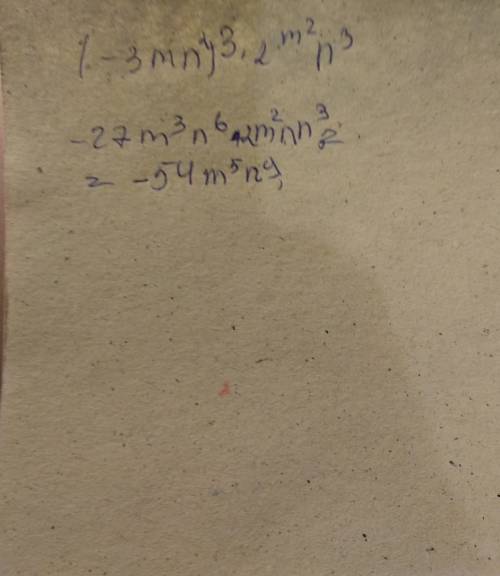 (-3mn²)³·2m²n³
-27m³n⁶·2m²n³=
= -54m⁵n⁹;